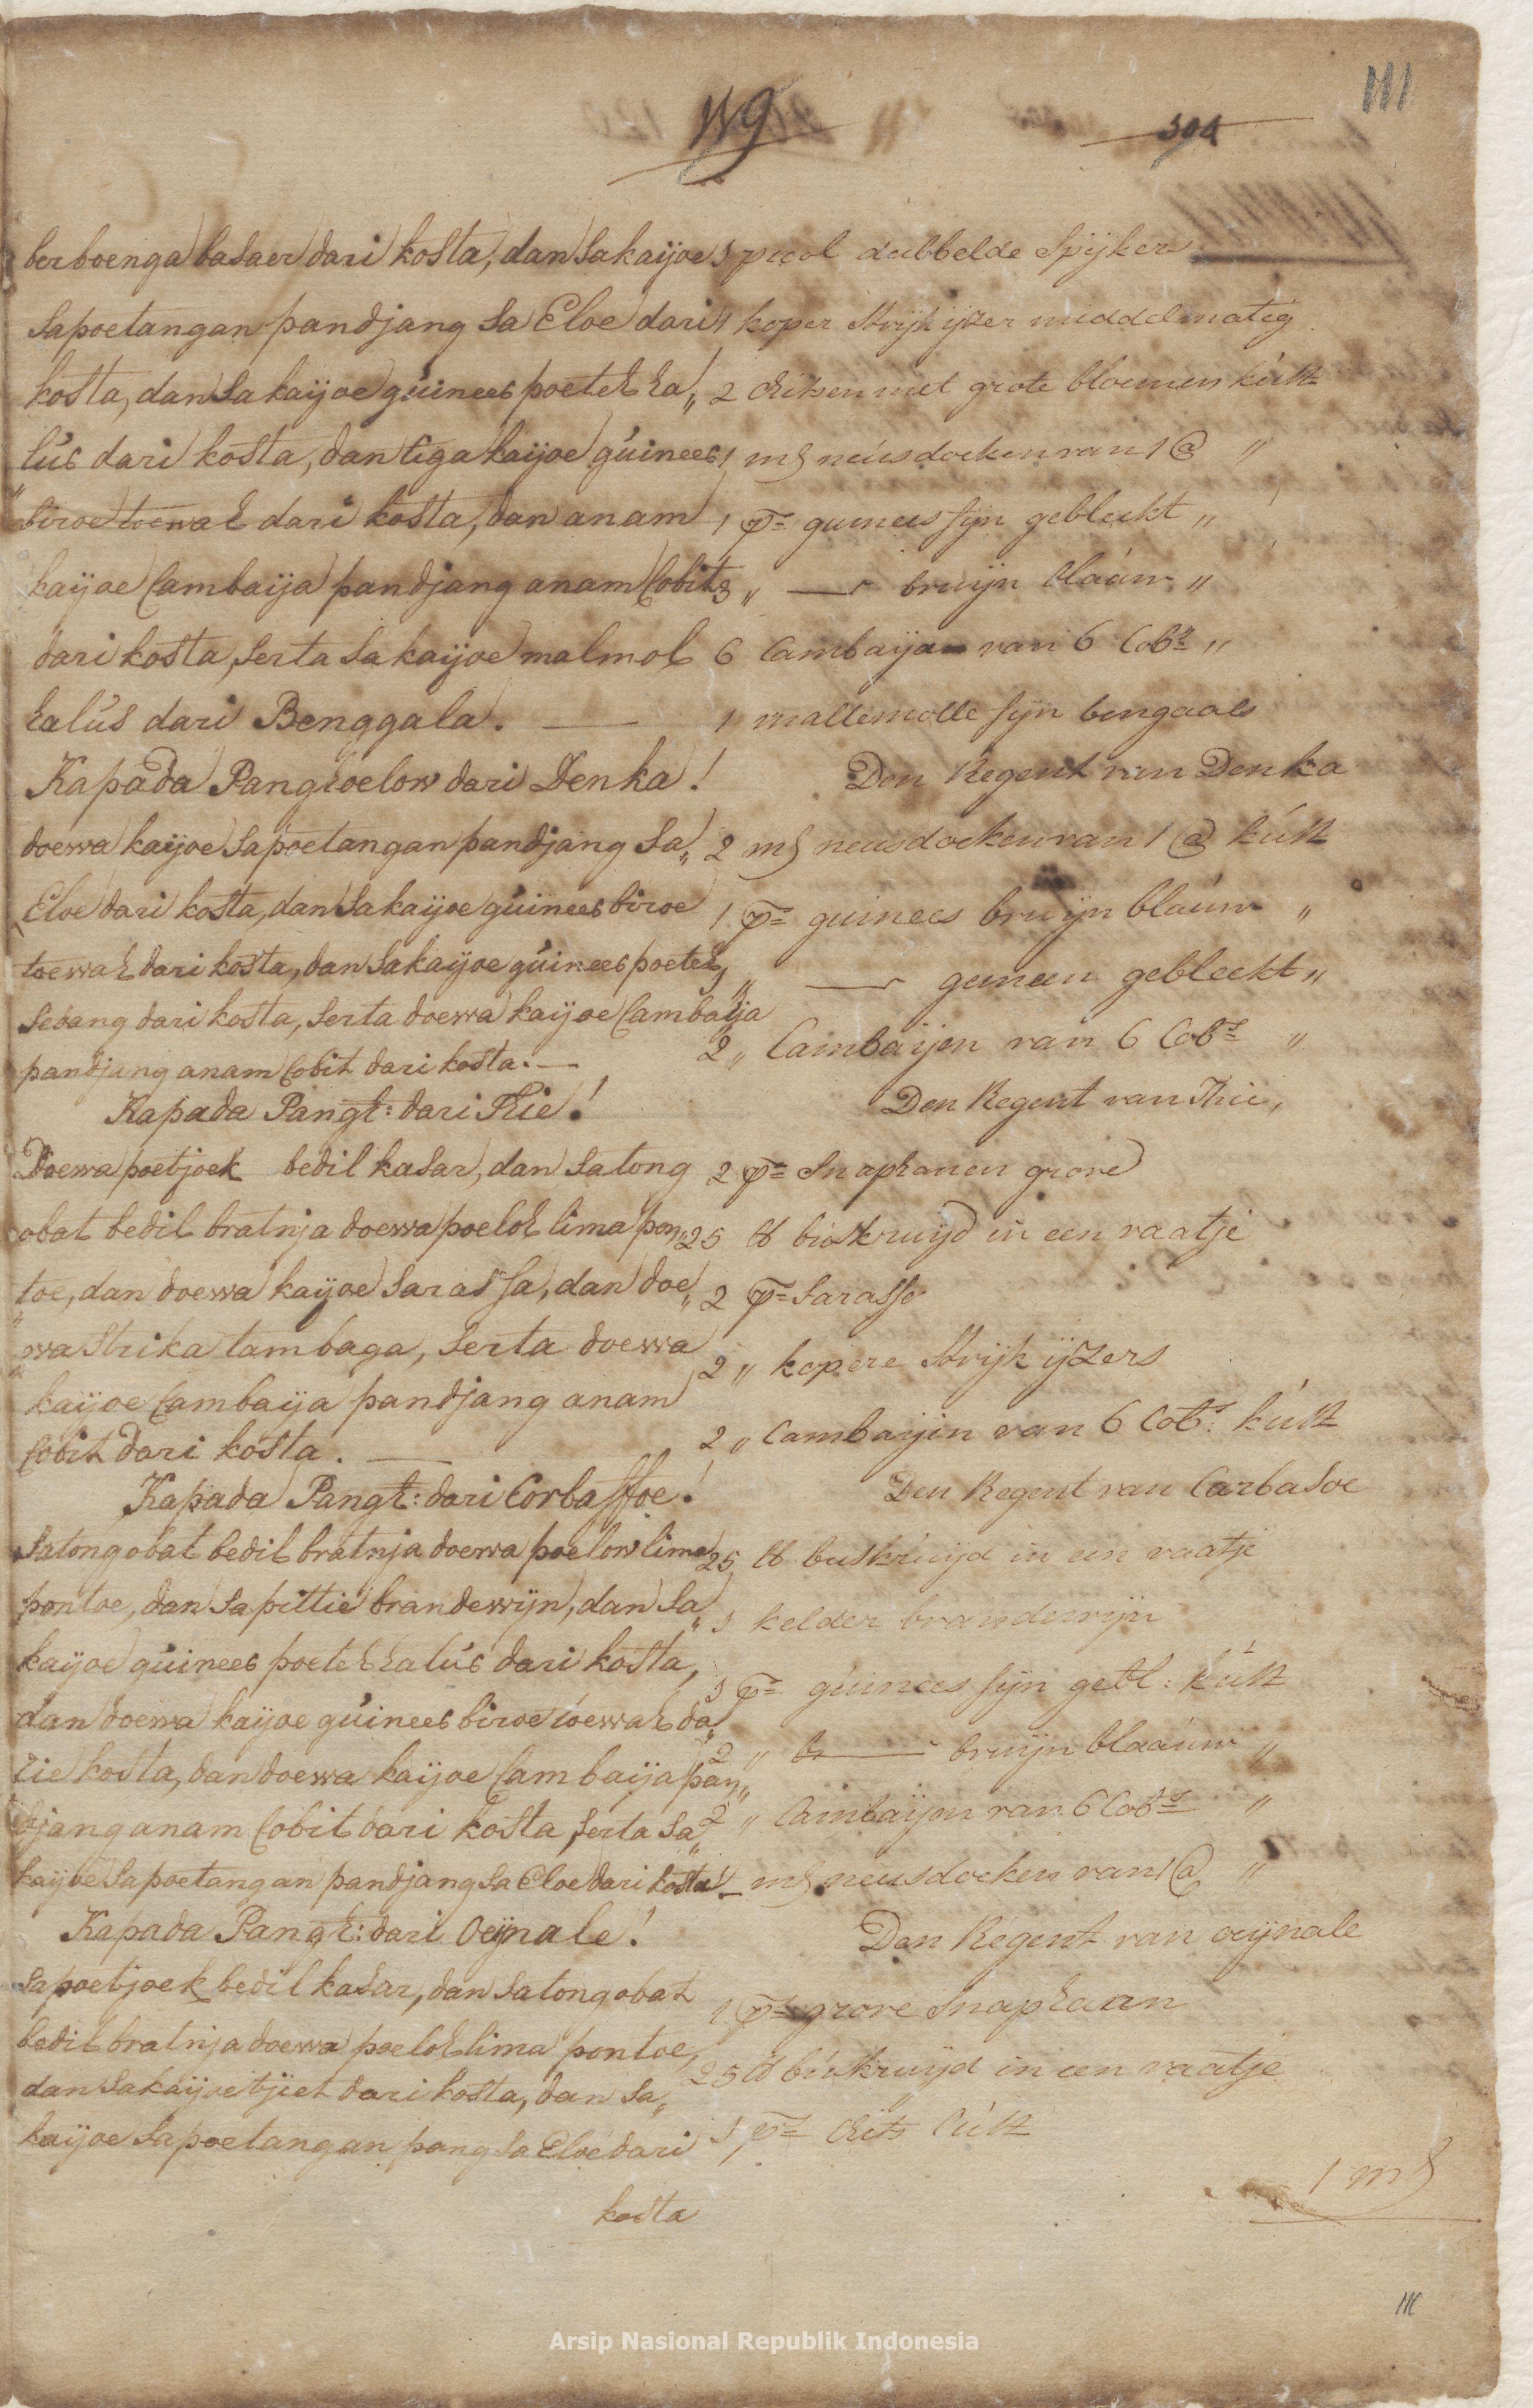 111
119
304
berboenga basaer dari kosta, dan sakaijoe
sapoetangan pandjang sa Eloe dari
kosta, dan sakaijoe guinees poeteh ha„
lus dari kosta, dan tiga kaijoe guinees
biroe toewah dari kosta, dan anam
kaijoe Cambaija pandjang anam Cobit
dari kosta, serta sakaijoe malmol
halus dari Benggala.
Kapada Panghoelow dari Denka!
doewa kaijoe sapoetangan pandjang sa„
Eloe dari kosta, dan sakaijoe guinees biroe
toewah dari kosta, dan sakaijoe guinees poeteh,
sedang dari kosta, serta doewa kaijoe Cambaija
pandjang anam Cobit dari kosta.
Kapada Pangh: dari Thie!
Doewa poetjoek bedil kasar, dan satong
obat bedil bratnja doewa poeloh lima pon„
toe, dan doewa kaijoe sarassa, dan doe„
wa strika tambaga, serta doewa
kaijoe Cambaija pandjang anam
Cobit dari kosta.
Kapada Pangh: dari Corbaffoe!
Satong obat bedil bratnja doewa poelow lima
pontoe, dan sapittie brandewijn, dan sa„
kaijoe guinees poeteh halus dari kosta,
dan doewa kaijoe guinees biroe toewah da„
rie kosta, dan doewa kaijoe Cambaija pan„
djang anam Cobit dari kosta, serta sa„
kaijoe sapoetangan pandjang sa Eloe dari kosta!
Kapada Pangh: dari Oeijnale!
sapoetjoek bedil kasar, dan satong obat
bedil bratnja doewa poeloh lima pontoe,
dan sakaijoe tjiet dari kosta, dan sa„
kaijoe sapoetangan pang sa Eloe dari
kosta
1 picol dubbelde Spijkers
1 koper strijkijzer middelmatig
2 chitsen met grote bloemen kust
1 m§ neusdoeken van 1 @ „
1 ps guinees fijn gebleekt „
3 „ — bruijn blauw „
6 Cambaijen van 6 Cobs „
1 mallemolle fijn bengaals
Den Regent van Denka
2 m§ neusdoeken van 1 @ kust
1 ps guinees bruijn blauw „
„ — gemeen gebleekt „
2 „ Cambaijen van 6 Cobs „
Den Regent van Thie,
2 ps Snaphanen grove
25 lb buskruijd in een vaatje
2 ps Sarasse
2 „ kopere strijkijzers
2 „ Cambaijen van 6 Cobs: kust
Den Regent van Carbasoe
25 lb buskruijd in een vaatje
1 kelder brandewijn
1 ps guinees fijn gebl: kust
2 „ — bruijn blaauw „
2 „ Cambaijen van 6 Cobs „
1 m§ neusdoeken van 1 @ „
Den Regent van oeijnale
1 ps grove Snaphaan
25 lb buskruijd in een vaatje
1 ps chits Cust
1 m§
111
Arsip Nasional Republik Indonesia